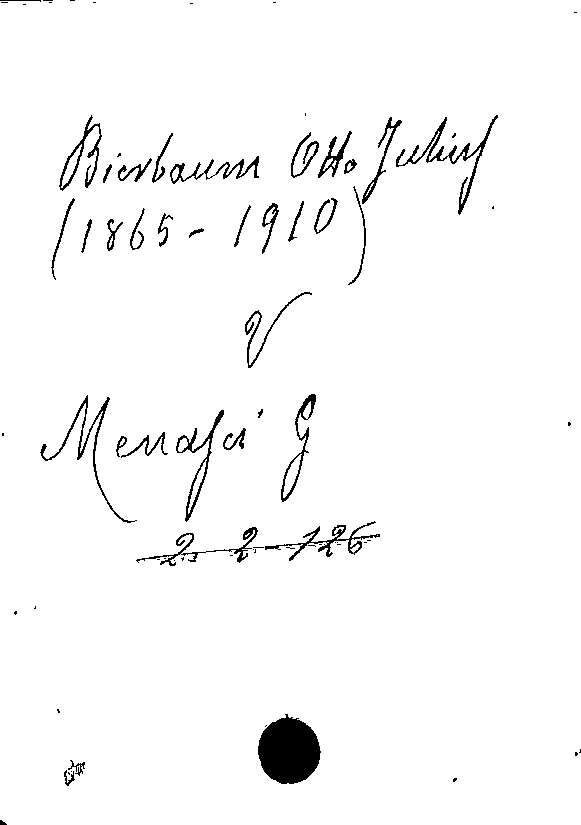 Bierbaum Otto Julius
(1865 - 1910)
V
G
2. 2 - 126